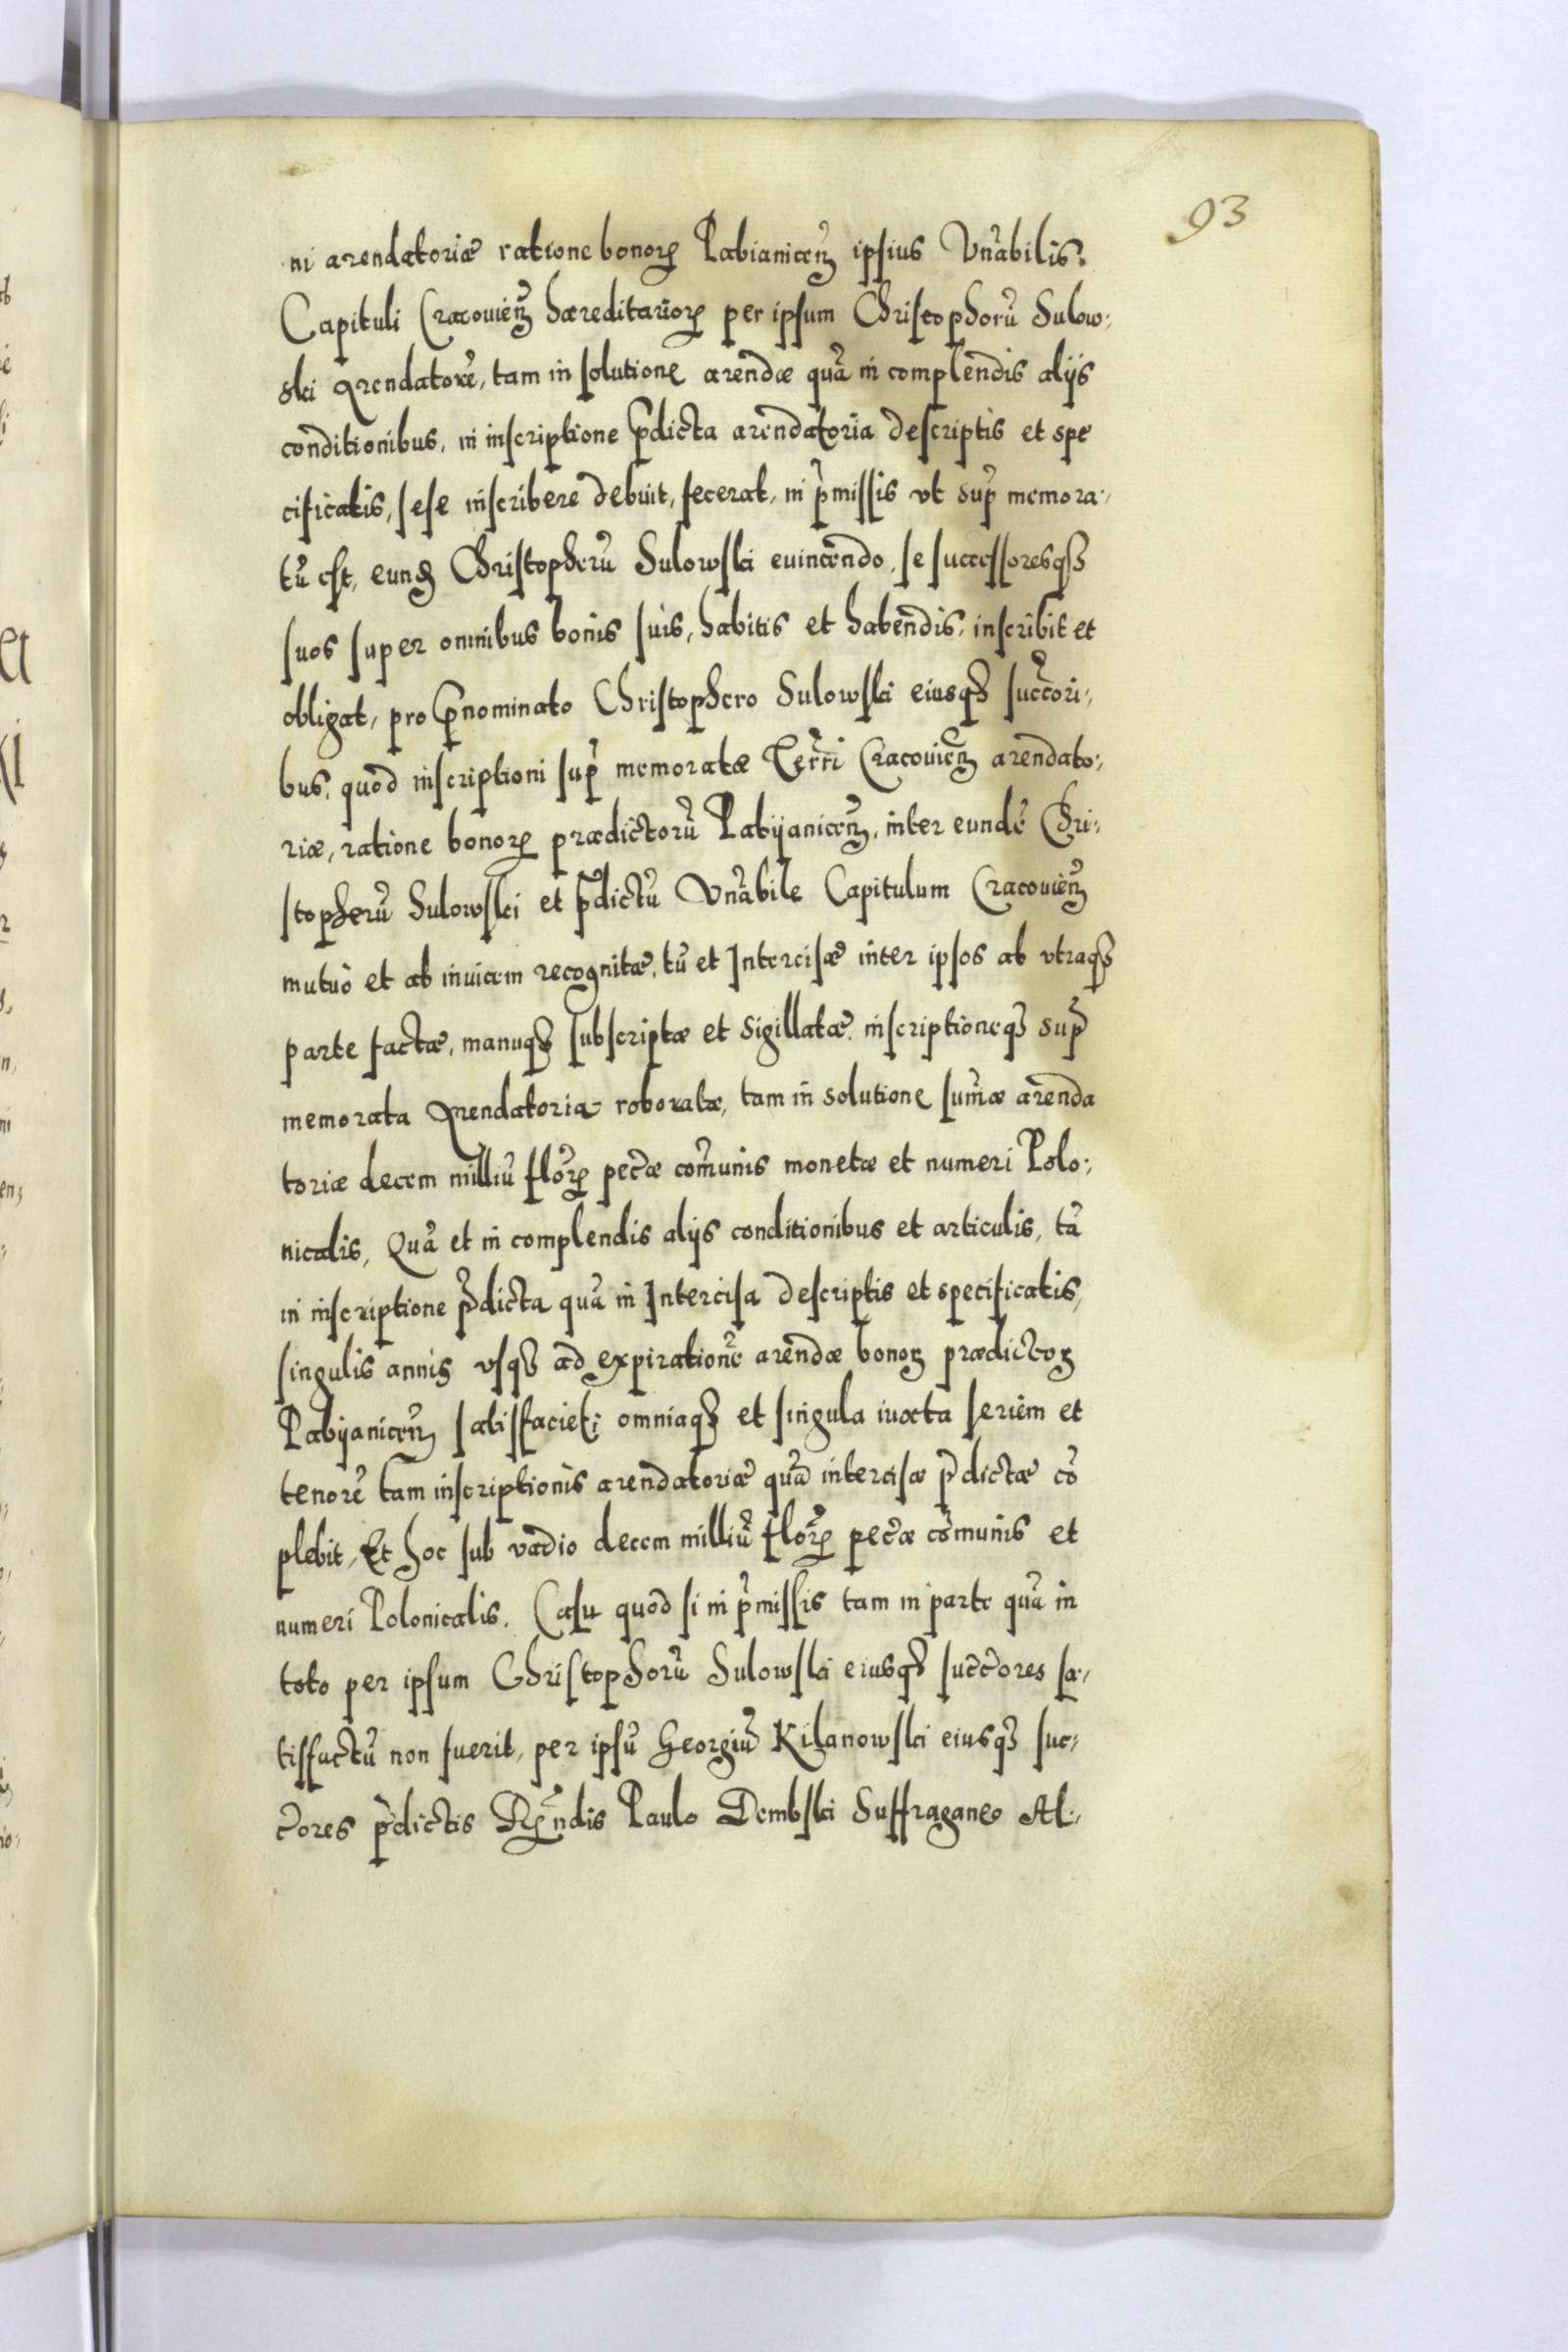 93
ni arendatoriæ ratione bonoꝝ Pabianiceñ ipsius Vnãbilis.
Capituli Cracouieñ hæreditarioꝝ per ipsum Christophorũ Sulow:
ski Arendatorẽ, tam in solutione arendæ quã in complendis alijs
conditionibus, in inscriptione p̃dicta arendatoria descriptis et spe
cificatis, sese inscribere debuit, fecerat, in p̃missis vt sup̃ memora:
tũ est, eund Christopherũ Sulowski euincendo, se successoresqꝫ
suos super omnibus bonis suis, habitis et habendis, inscribit et
obligat, pro p̃nominato Christophero Sulowski eiusqꝫ succ̃ori:
bus, quod inscriptioni sup̃ memoratæ Terr̃i Cracouieñ arendato:
riæ, ratione bonoꝝ prædictorũ Pabijaniceñ, inter eundẽ Chri:
stopherũ Sulowski et p̃dictũ Vnãbile Capitulum Cracouieñ
mutuò et ab inuicem recognitæ, tũ et Intercisæ inter ipsos ab vtraqꝫ
parte factæ, manuqꝫ subscriptæ et sigillatæ, inscriptioneqꝫ sup̃
memorata Arendatoria roboratæ, tam in solutione sum̃æ arenda
toriæ decem milliũ flõꝝ pec̃æ com̃unis monetæ et numeri Polo:
nicalis, Quã et in complendis alijs conditionibus et articulis, tã
in inscriptione p̃dicta quã in Intercisa descriptis et specificatis,
singulis annis vsqꝫ ad expirationẽ arendæ bonoꝝ prædictoꝝ
Pabijaniceñ satisfaciet; omniaqꝫ et singula iuxta seriem et
tenorẽ tam inscriptionis arendatoriæ quã intercisæ p̃dictæ cõ
plebit, Et hoc sub vadio decem milliũ flor̃ꝝ pec̃æ com̃unis et
numeri Polonicalis. Casu quod si in p̃missis tam in parte quã in
toto per ipsum Christophorũ Sulowski eiusqꝫ succ̃ores sa:
tisfactũ non fuerit, per ipsũ Georgiũ Kilanowski eiusqꝫ suc:
c̃ores p̃dictis Rñdis Paulo Dembski Suffraganeo Al: